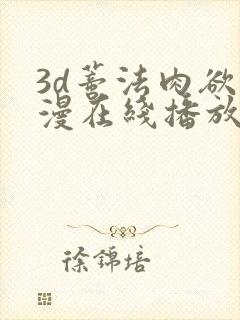 3d蕃法肉欲
漫在线播放
徐锦培